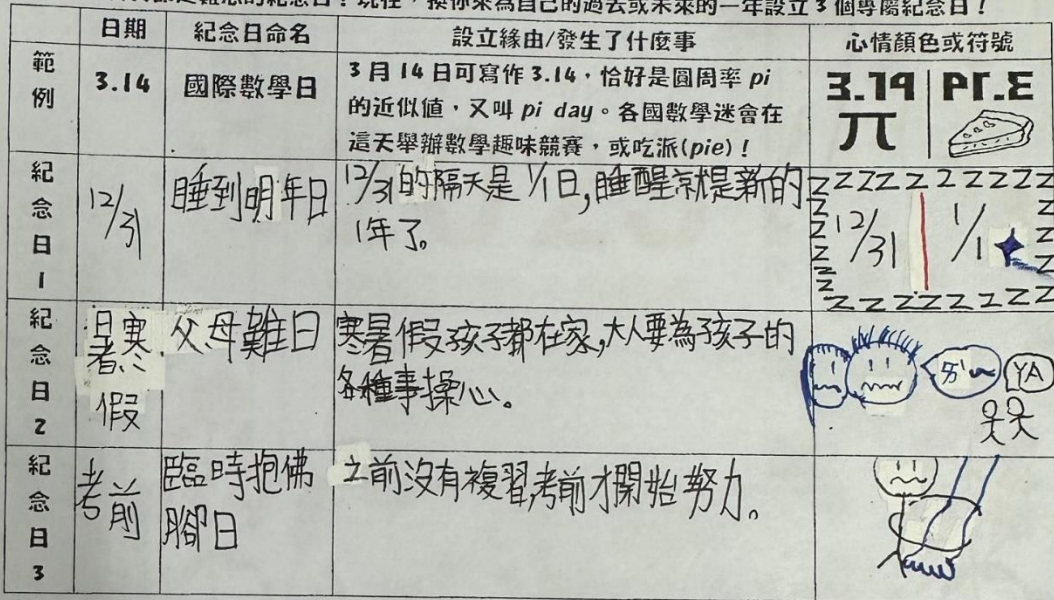 天都是難忘的紀念日！現在，換你來為自己的過去或未來的一年設立3個專屬紀念日！
日期 紀念日命名 設立緣由/發生了什麼事 心情顏色或符號
範例 3.14 國際數學日 3月14日可寫作3.14，恰好是圓周率pi
的近似值，又叫pi day。各國數學迷會在
這天舉辦數學趣味競賽，或吃派(pie)！
3.14 PI.E
π
紀念日1 12/31 睡到明年日 12/31的隔天是1/1日,睡醒就是新的
1年了。
ZZZZZZZZZZ
12/31 1/1
ZZZZZZZZ
紀念日2 暑寒假 父母難日 寒暑假孩子都在家,大人要為孩子的
各種事操心。
YA
紀念日3 考前 臨時抱佛
腳日
之前沒有複習,考前才開始努力。